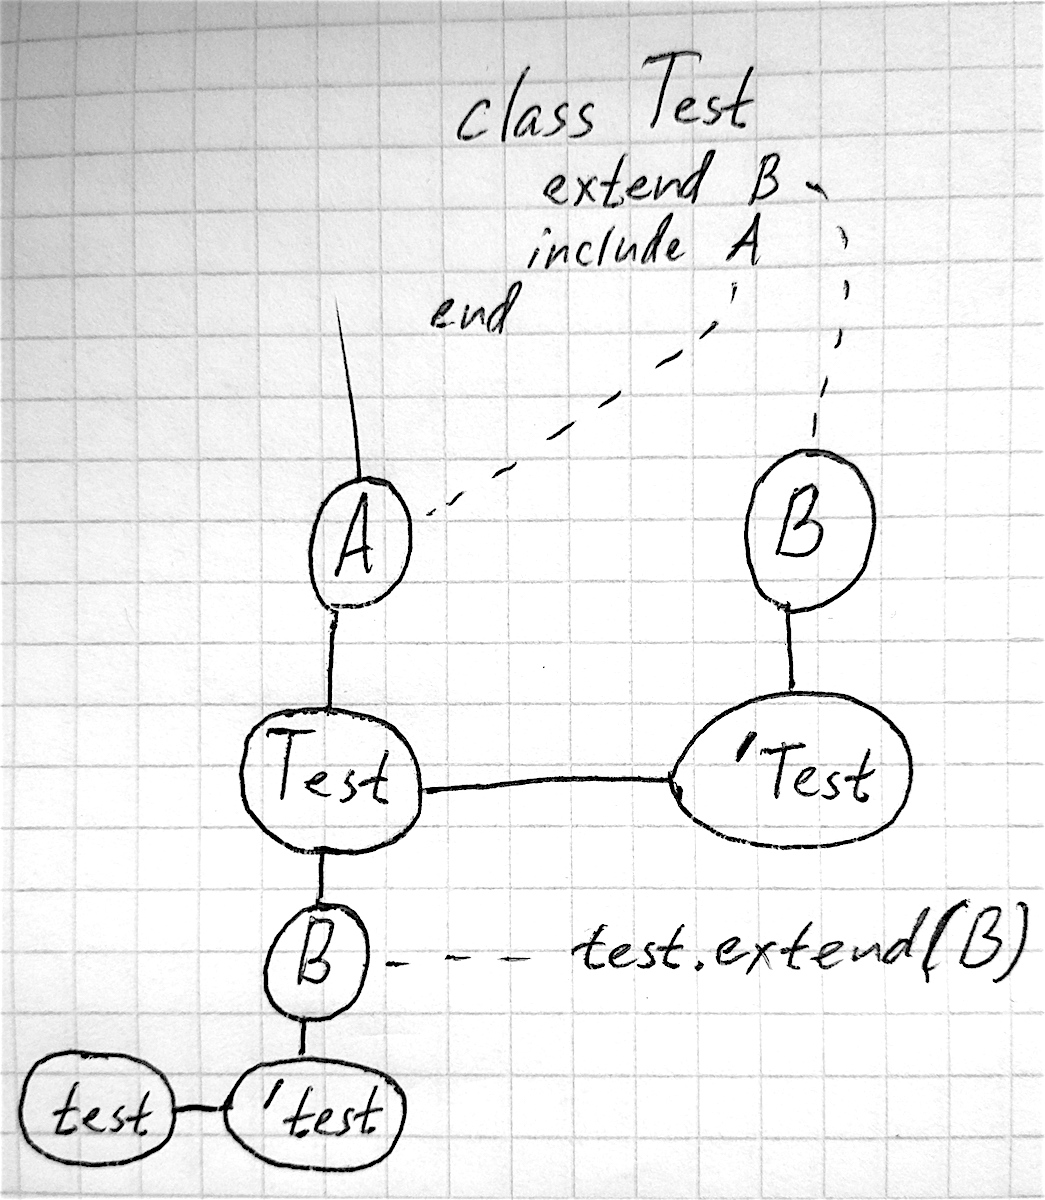 class Test
extend B
include A
end
A
B
Test
'Test
B
test.extend(B)
test
'test